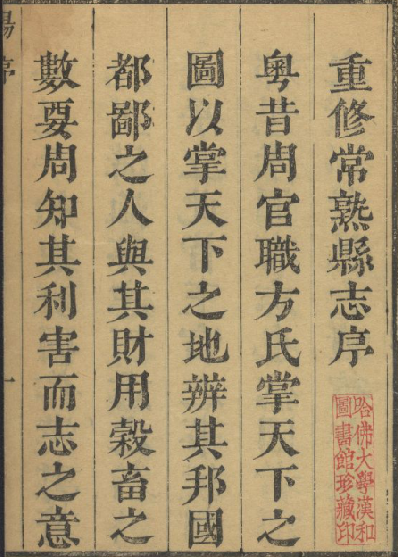 重修常熟縣志序
粤昔周官職方氏掌天下之
圖以掌天下之地辨其邦國
都鄙之人與其財用穀畜之
數要周知其利害而志之意
哈佛大學漢和
圖書館珍藏印